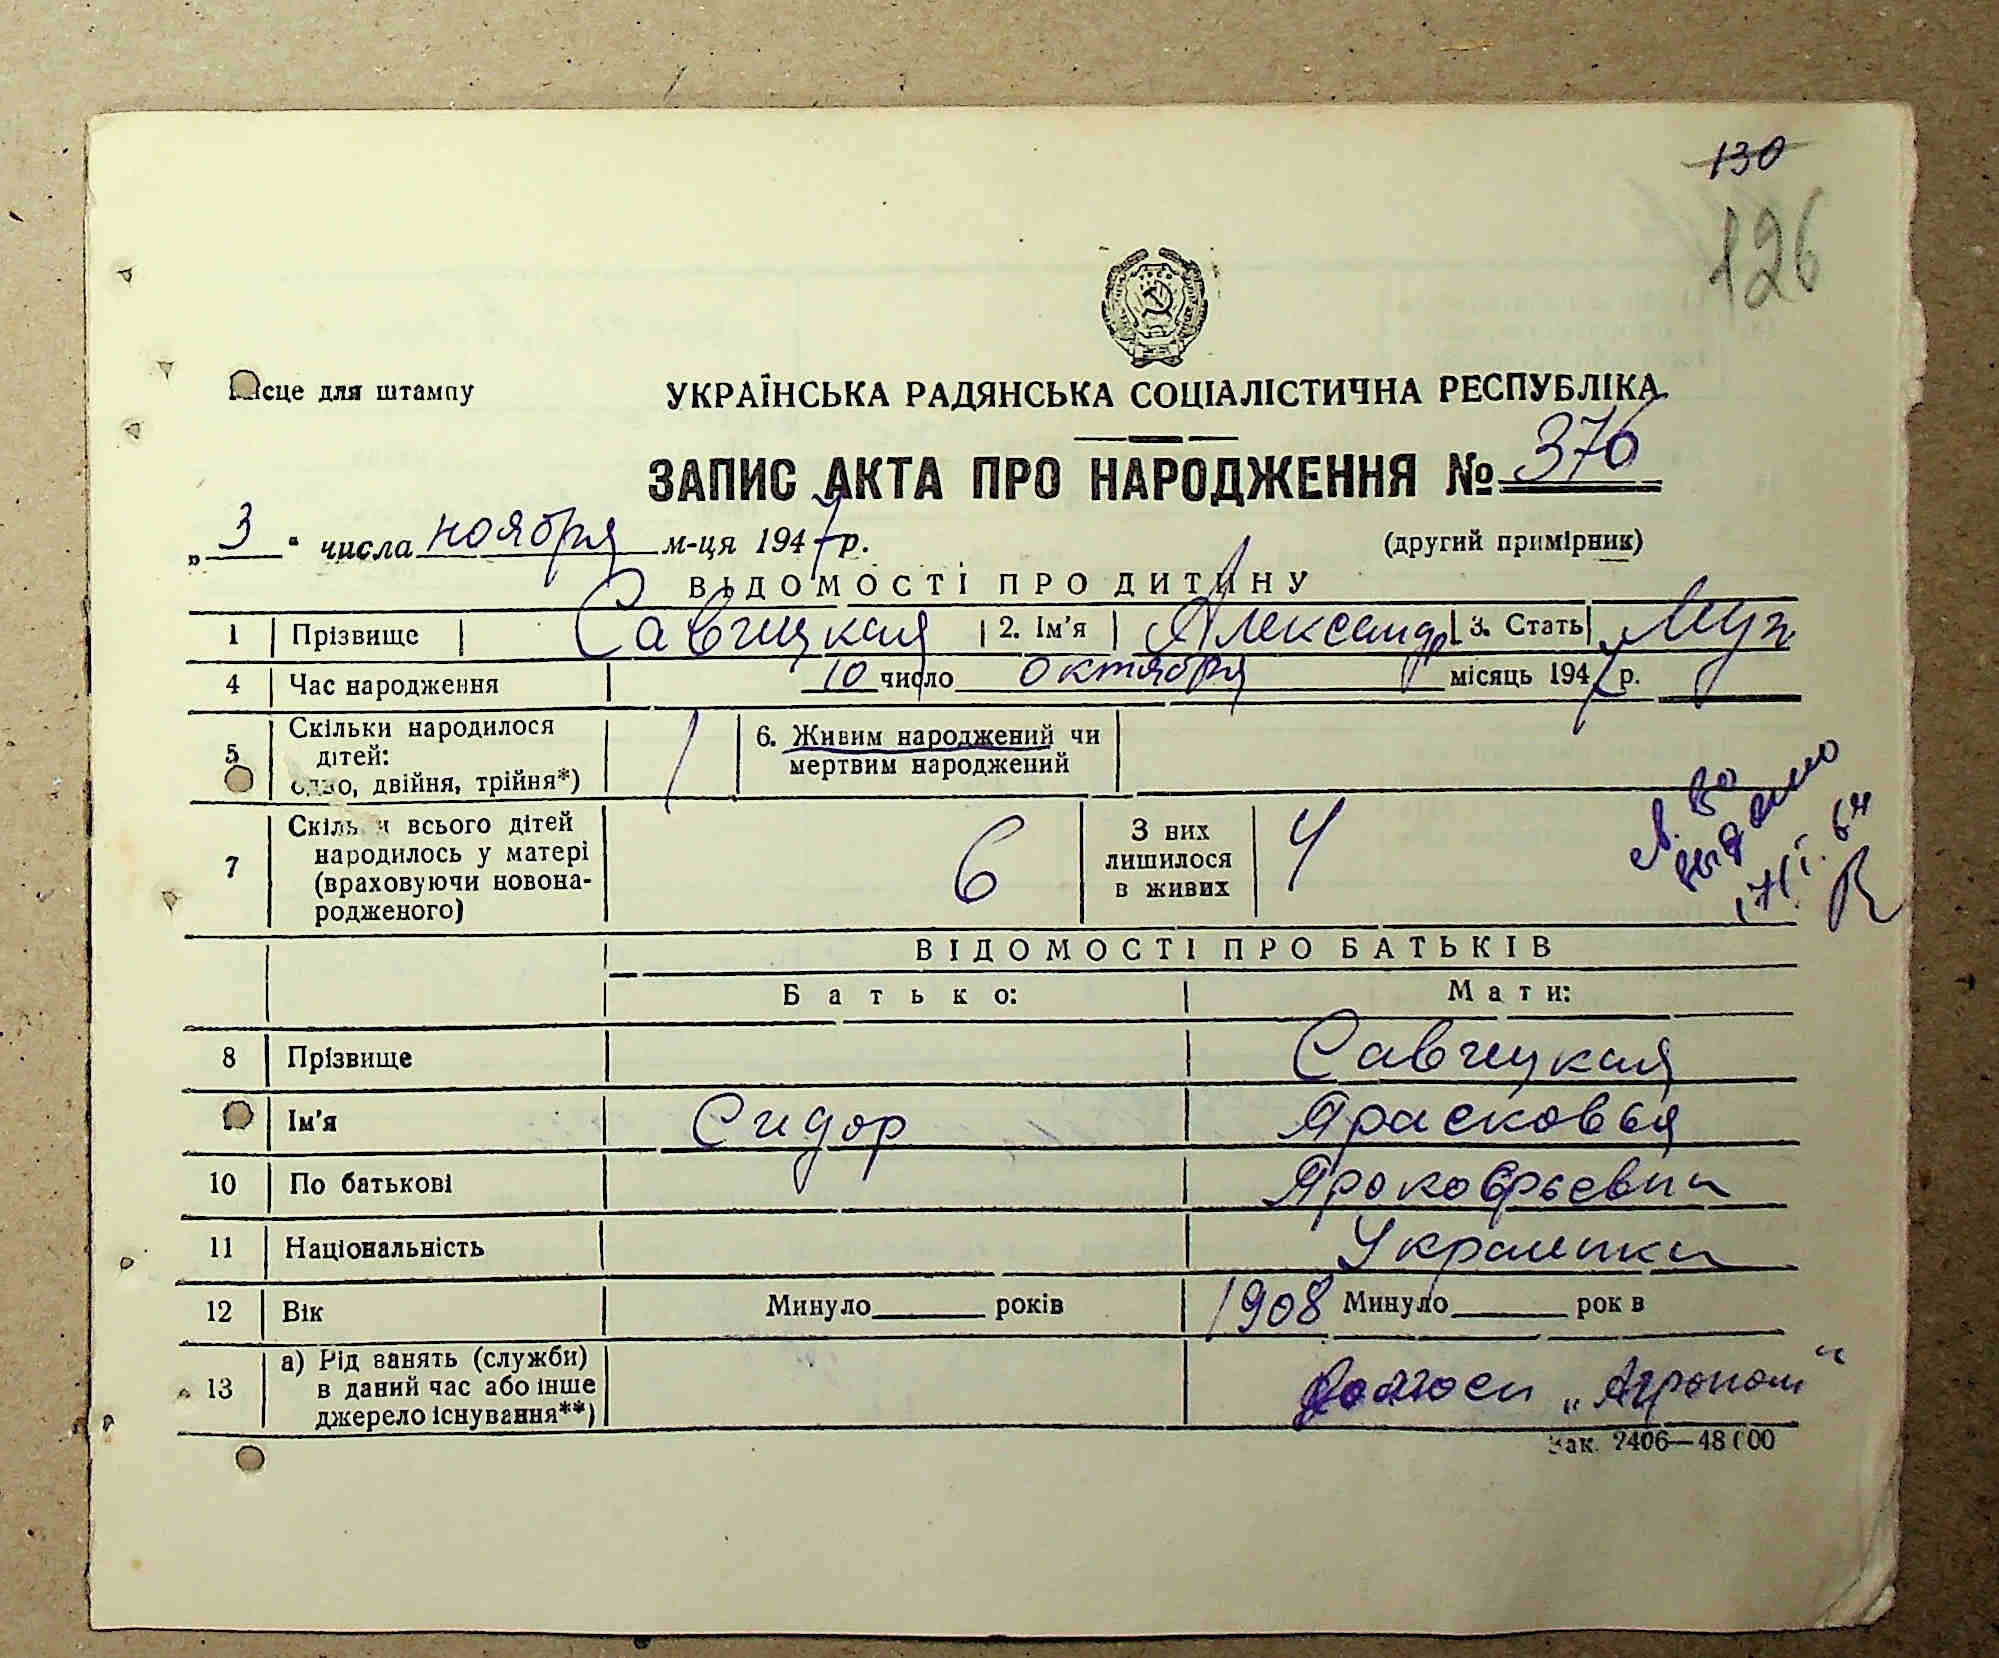 130
126
Місце для штампу
УКРАЇНСЬКА РАДЯНСЬКА СОЦІАЛІСТИЧНА РЕСПУБЛІКА
ЗАПИС АКТА ПРО НАРОДЖЕННЯ № 376
„ 3 “ числа ноября м-ця 1947 р. (другий примірник)
ВІДОМОСТІ ПРО ДИТИНУ
1 Прізвище Савчицкая 2. Ім'я Александр 3. Стать Муж
4 Час народження 10 число октября місяць 1947 р.
5 Скільки народилося дітей: одно, двійня, трійня*) 1 6. Живим народжений чи мертвим народжений
7 Скільки всього дітей народилось у матері (враховуючи новонародженого) 6 З них лишилося в живих 4
выдано
64
ВІДОМОСТІ ПРО БАТЬКІВ
Батько: Мати:
8 Прізвище Савчицкая
Ім'я Сидор Прасковья
10 По батькові Прокофьевна
11 Національність Украинка
12 Вік Минуло рокiв 1908 Минуло рок в
13 а) Рід занять (служби) в даний час або інше джерело існування**) „Агроном“
Зак. 2406—48000